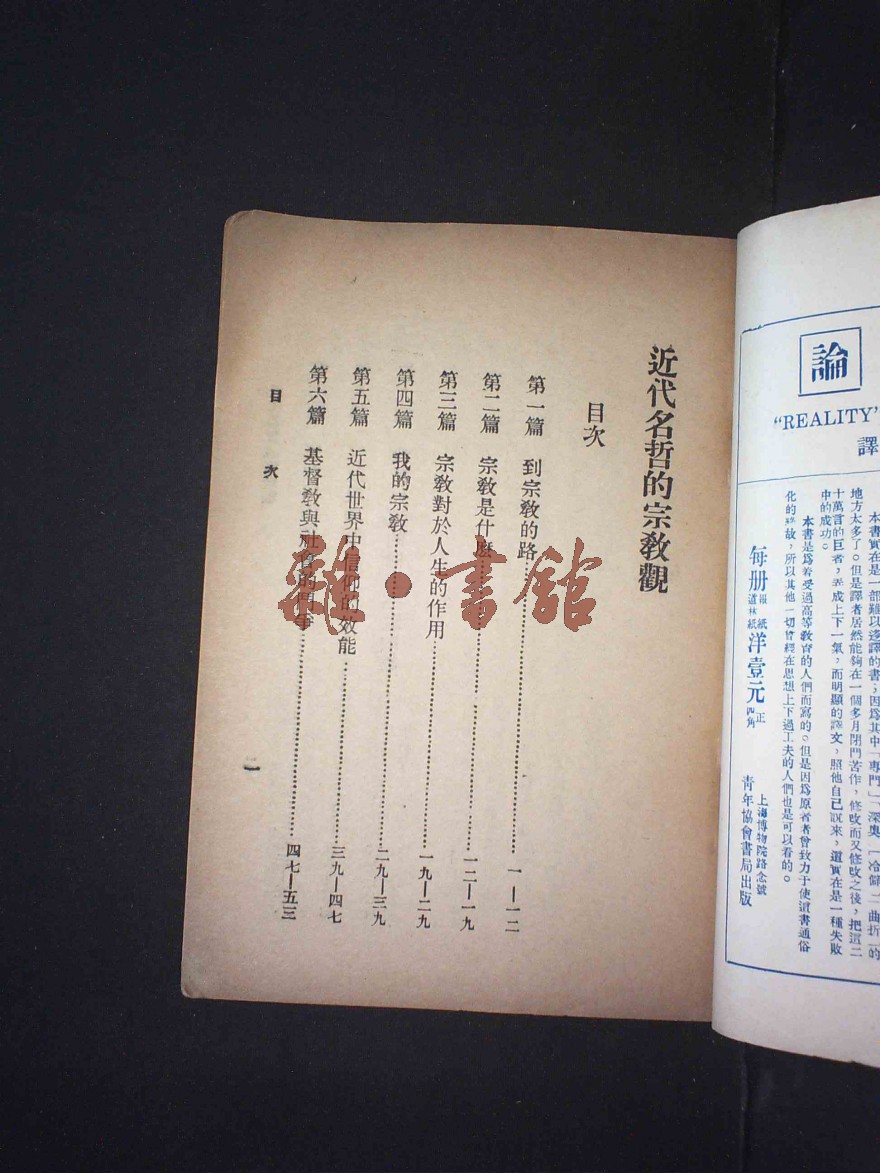 論
“REALITY”
譯
本書實在是一部難以迻譯的書;因爲其中「專門」、深奥、「冷僻」、曲折」的
地方太多了。但是譯者居然能夠在一個多月閉門苦作,修改而又修改之後,把這二
十萬言的巨著,弄成上下一氣,而明顯的譯文,照他自己説來,還實在是一種失敗
中的成功。
本書是爲着受過高等教育的人們而寫的。但是因爲原著者曾致力于使讀書通俗
化的緣故,所以其他一切曾經在思想上下過工夫的人們也是可以看的。
每册 報紙 道林紙 洋壹元 正 四角
上海博物院路念號
青年協會書局出版
近代名哲的宗教觀
目次
第一篇 到宗教的路……一—一二
第二篇 宗教是什麽……一二—一九
第三篇 宗教對於人生的作用……一九—二九
第四篇 我的宗教……二九—三九
第五篇 近代世界中信仰的效能……三九—四七
第六篇 基督教與社會的鬥爭……四七—五三
目 次
一
雜·書館